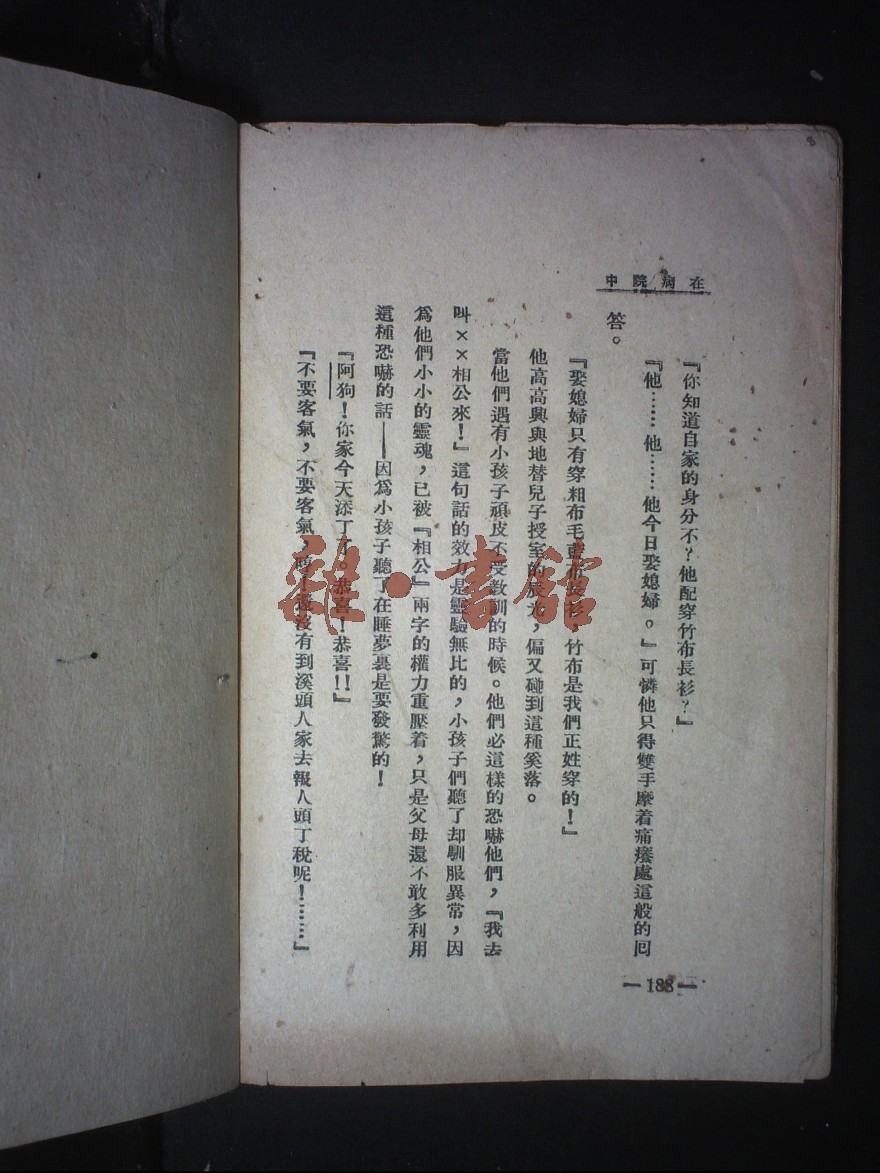 在病院中
『你知道自家的身分不？他配穿竹布長衫？』
『他……他……他今日娶媳婦。』可憐他只得雙手摩着痛癢處這般的囘
答。
『娶媳婦只有穿粗布毛藍布長衫，竹布是我們正姓穿的！』
他高高興興地替兒子授室的，偏又碰到這種奚落。
當他們遇有小孩子頑皮不受教訓的時候。他們必這樣的恐嚇他們，『我去
叫××相公來！』這句話的效力是靈驗無比的，小孩子們聽了却馴服異常，因
爲他們小小的靈魂，已被『相公』兩字的權力重壓着，只是父母還不敢多利用
這種恐嚇的話——因爲小孩子聽了在睡夢裏是要發驚的！
『阿狗！你家今天添丁了。恭喜！恭喜！！』
『不要客氣，不要客氣，還沒有到溪頭人家去報人頭丁稅呢！……』
—188—
雜·書館